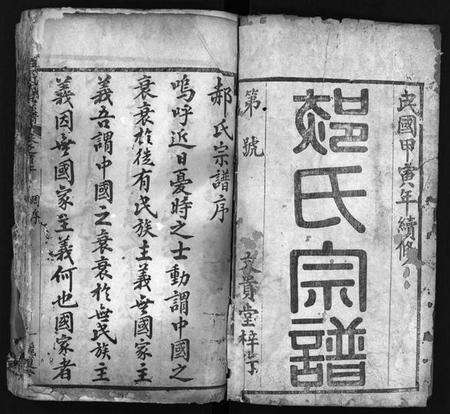 民國甲寅年續修
郝氏宗譜
第號
文賁堂梓
郝氏宗譜序
嗚呼近日憂時之士動謂中國之
衰衰於徒有民族主義無國家主
義吾謂中國之衰衰於無民族主
義因無國家主義何也國家者